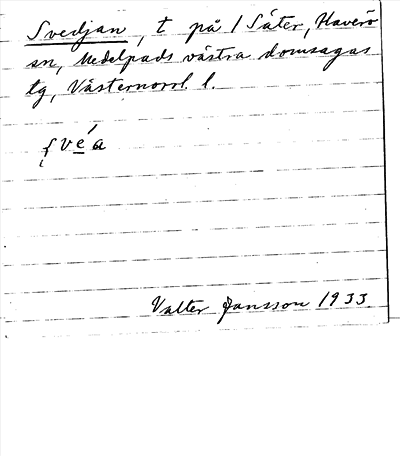 Svedjan, t på 1 Säter, Haverö
sn, Medelpads västra domsagas
tg, Västernorrl. l.
ʃvé̲a
Valter Jansson 1933.